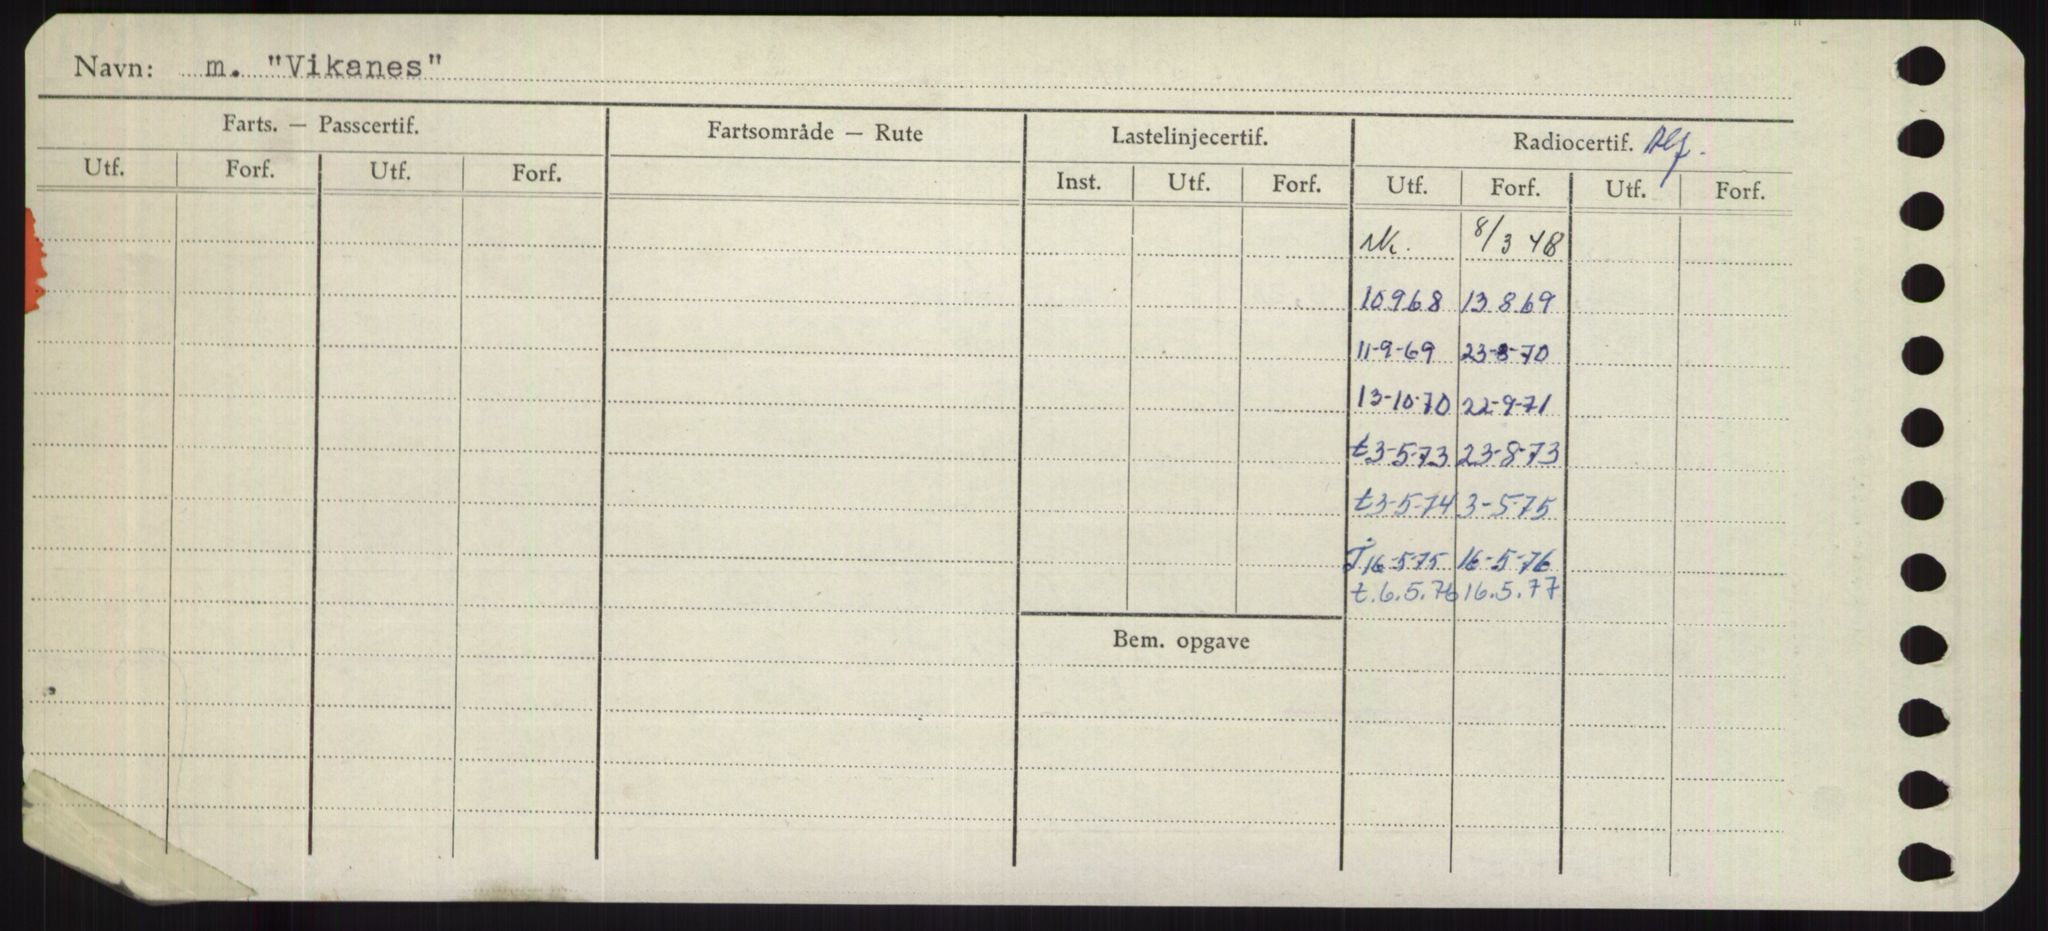 Navn: m. "Vikanes"
Farts. — Passcertif. Fartsområde — Rute Lastelinjecertif. Radiocertif.
Utf. Forf. Utf. Forf. Inst. Utf. Forf. Utf. Forf. Utf. Forf.
8/3 48
10 9 68 13 8 69
11-9-69 23-8-70
13-10-70 22-9-71
t 3-5-73 23-8-73
t 3-5-74 3-5-75
T 16-5-75 16-5-76
t. 6.5.76 16.5.77
Bem. opgave